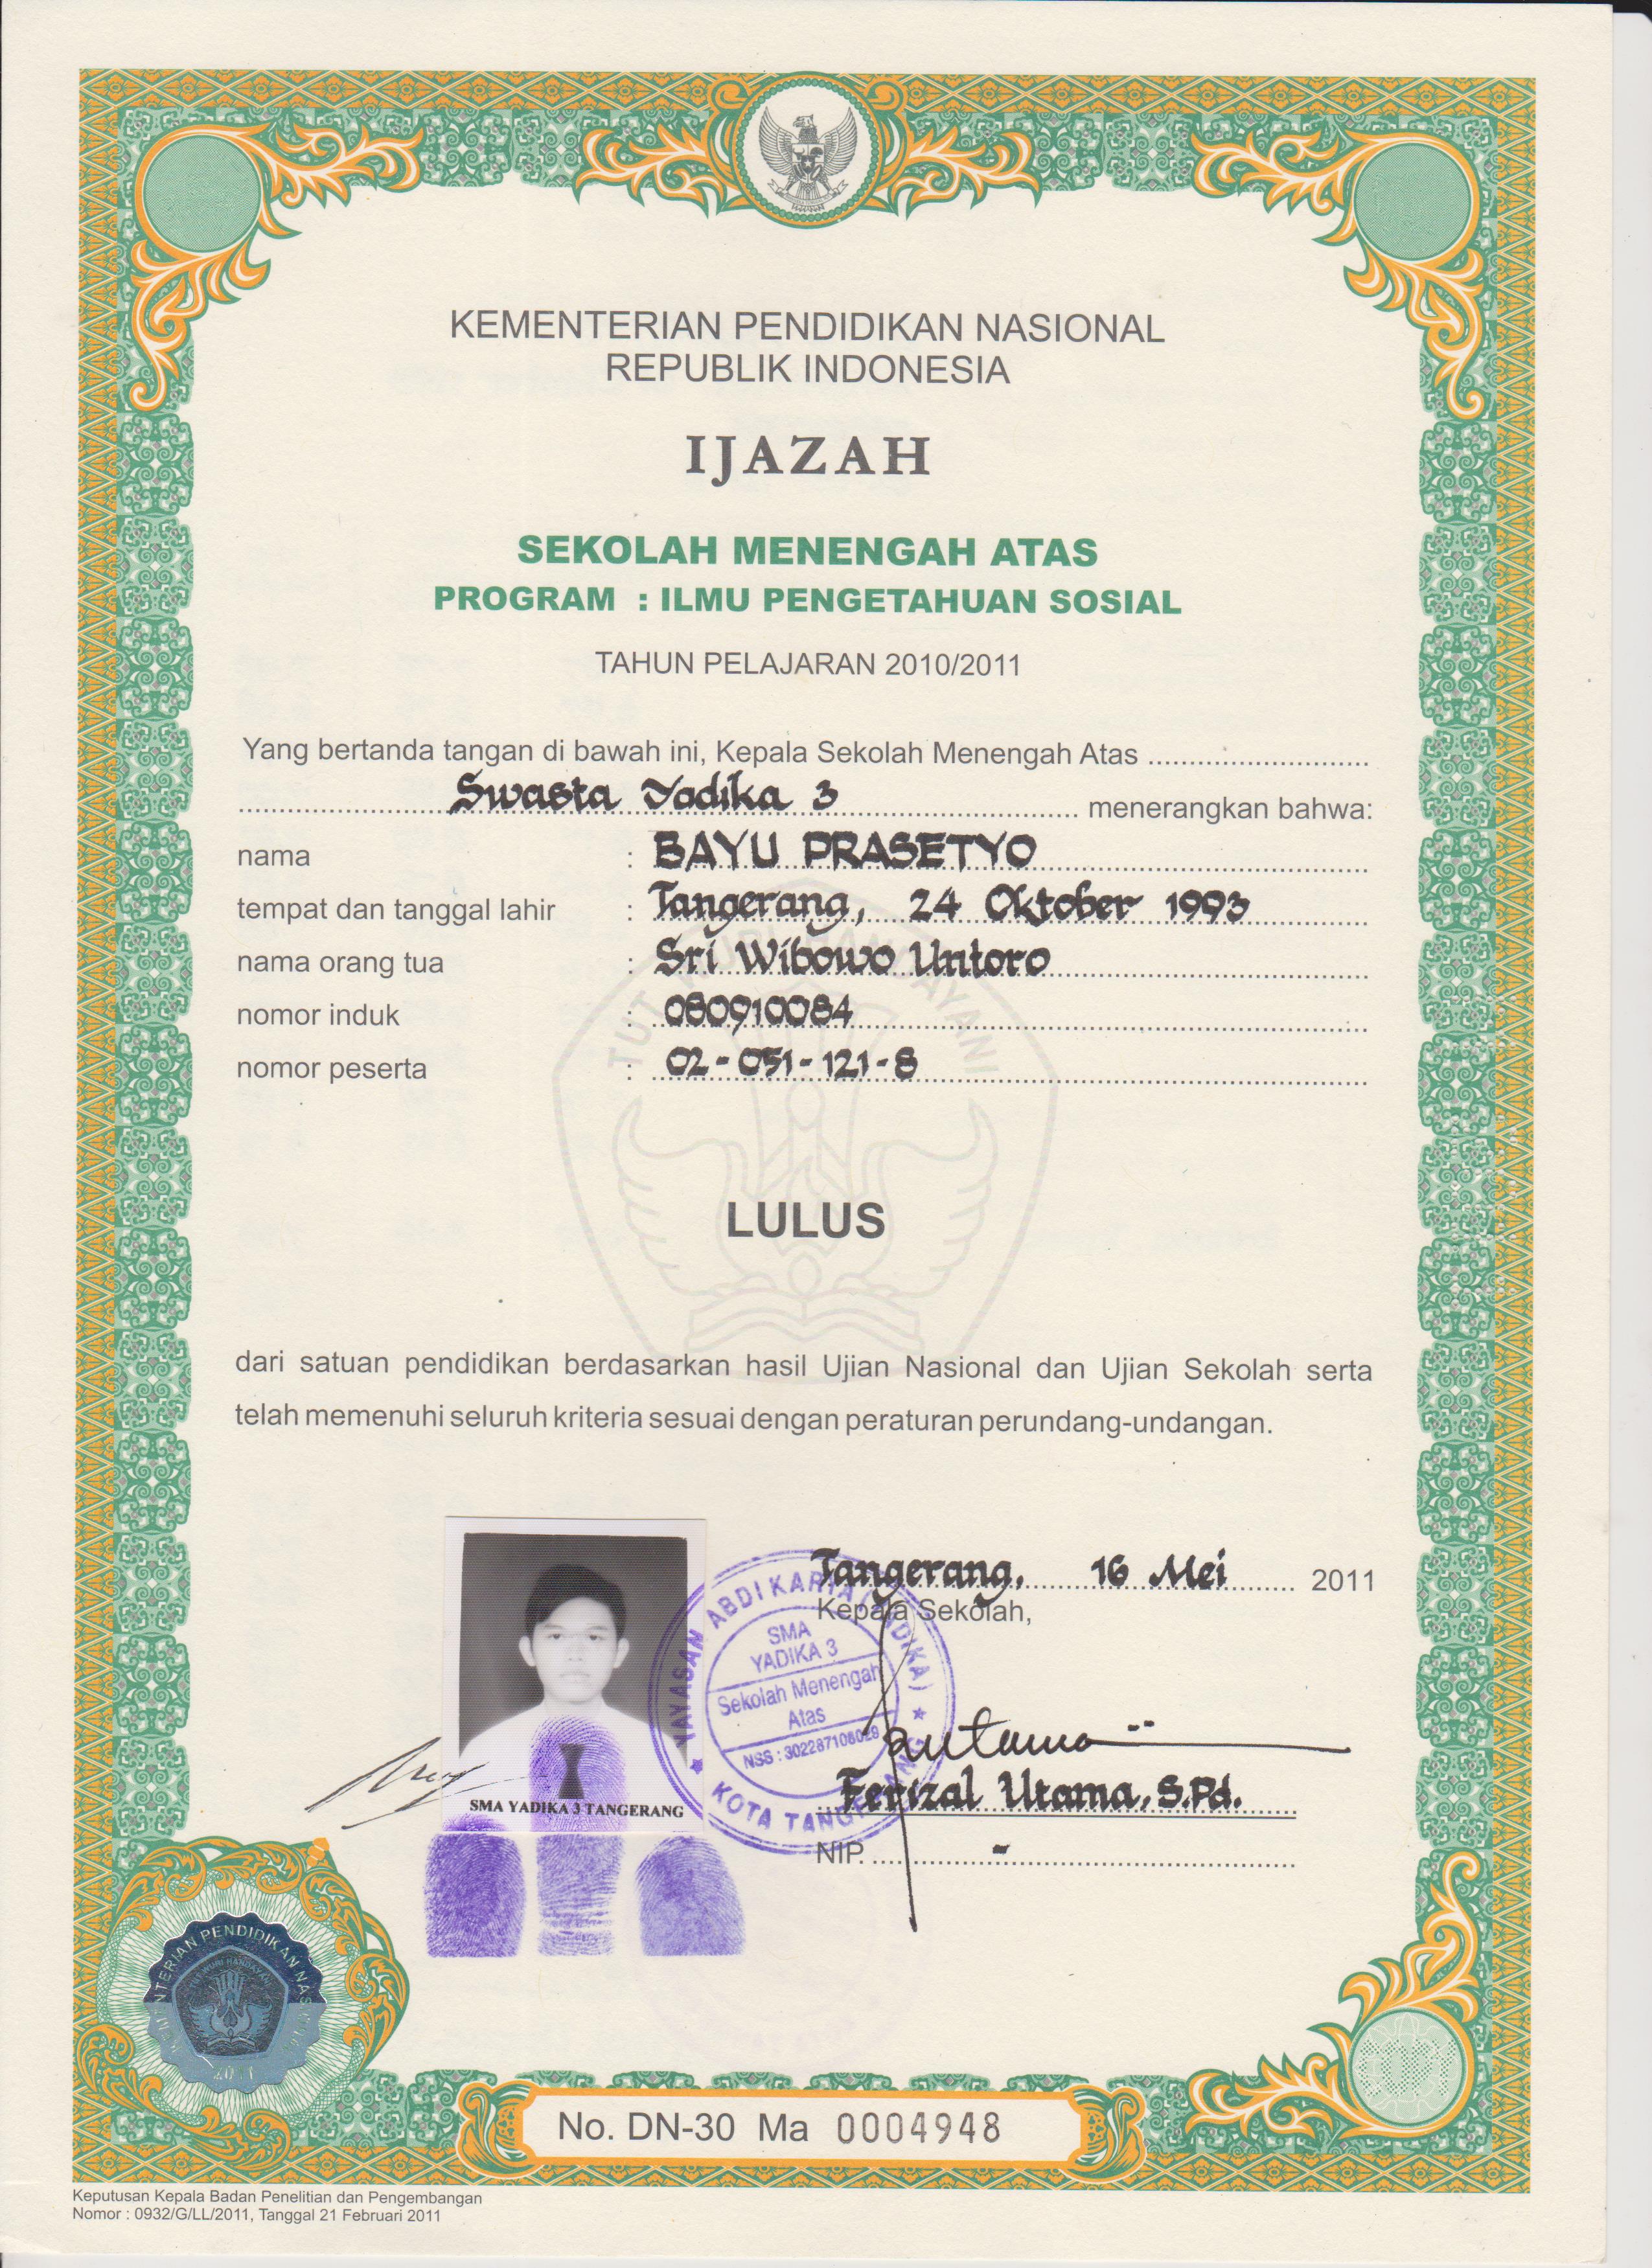 KEMENTERIAN PENDIDIKAN NASIONAL
REPUBLIK INDONESIA
IJAZAH
SEKOLAH MENENGAH ATAS
PROGRAM : ILMU PENGETAHUAN SOSIAL
TAHUN PELAJARAN 2010/2011
Yang bertanda tangan di bawah ini, Kepala Sekolah Menengah Atas
Swasta Yadika 3 menerangkan bahwa:
nama : BAYU PRASETYO
tempat dan tanggal lahir : Tangerang, 24 Oktober 1993
nama orang tua : Sri Wibowo Untoro
nomor induk : 080910084
nomor peserta : 02-051-121-8
TUT WURI HANDAYANI
LULUS
dari satuan pendidikan berdasarkan hasil Ujian Nasional dan Ujian Sekolah serta
telah memenuhi seluruh kriteria sesuai dengan peraturan perundang-undangan.
Tangerang, 16 Mei 2011
Kepala Sekolah,
YAYASAN ABDI KARYA (YADIKA)
SMA
YADIKA 3
Sekolah Menengah
Atas
NSS : 302287108028
KOTA TANGERANG
SMA YADIKA 3 TANGERANG
Ferizal Utama, S.Pd.
NIP. -
KEMENTERIAN PENDIDIKAN NASIONAL
TUT WURI HANDAYANI
2011
No. DN-30 Ma 0004948
Keputusan Kepala Badan Penelitian dan Pengembangan
Nomor : 0932/G/LL/2011, Tanggal 21 Februari 2011